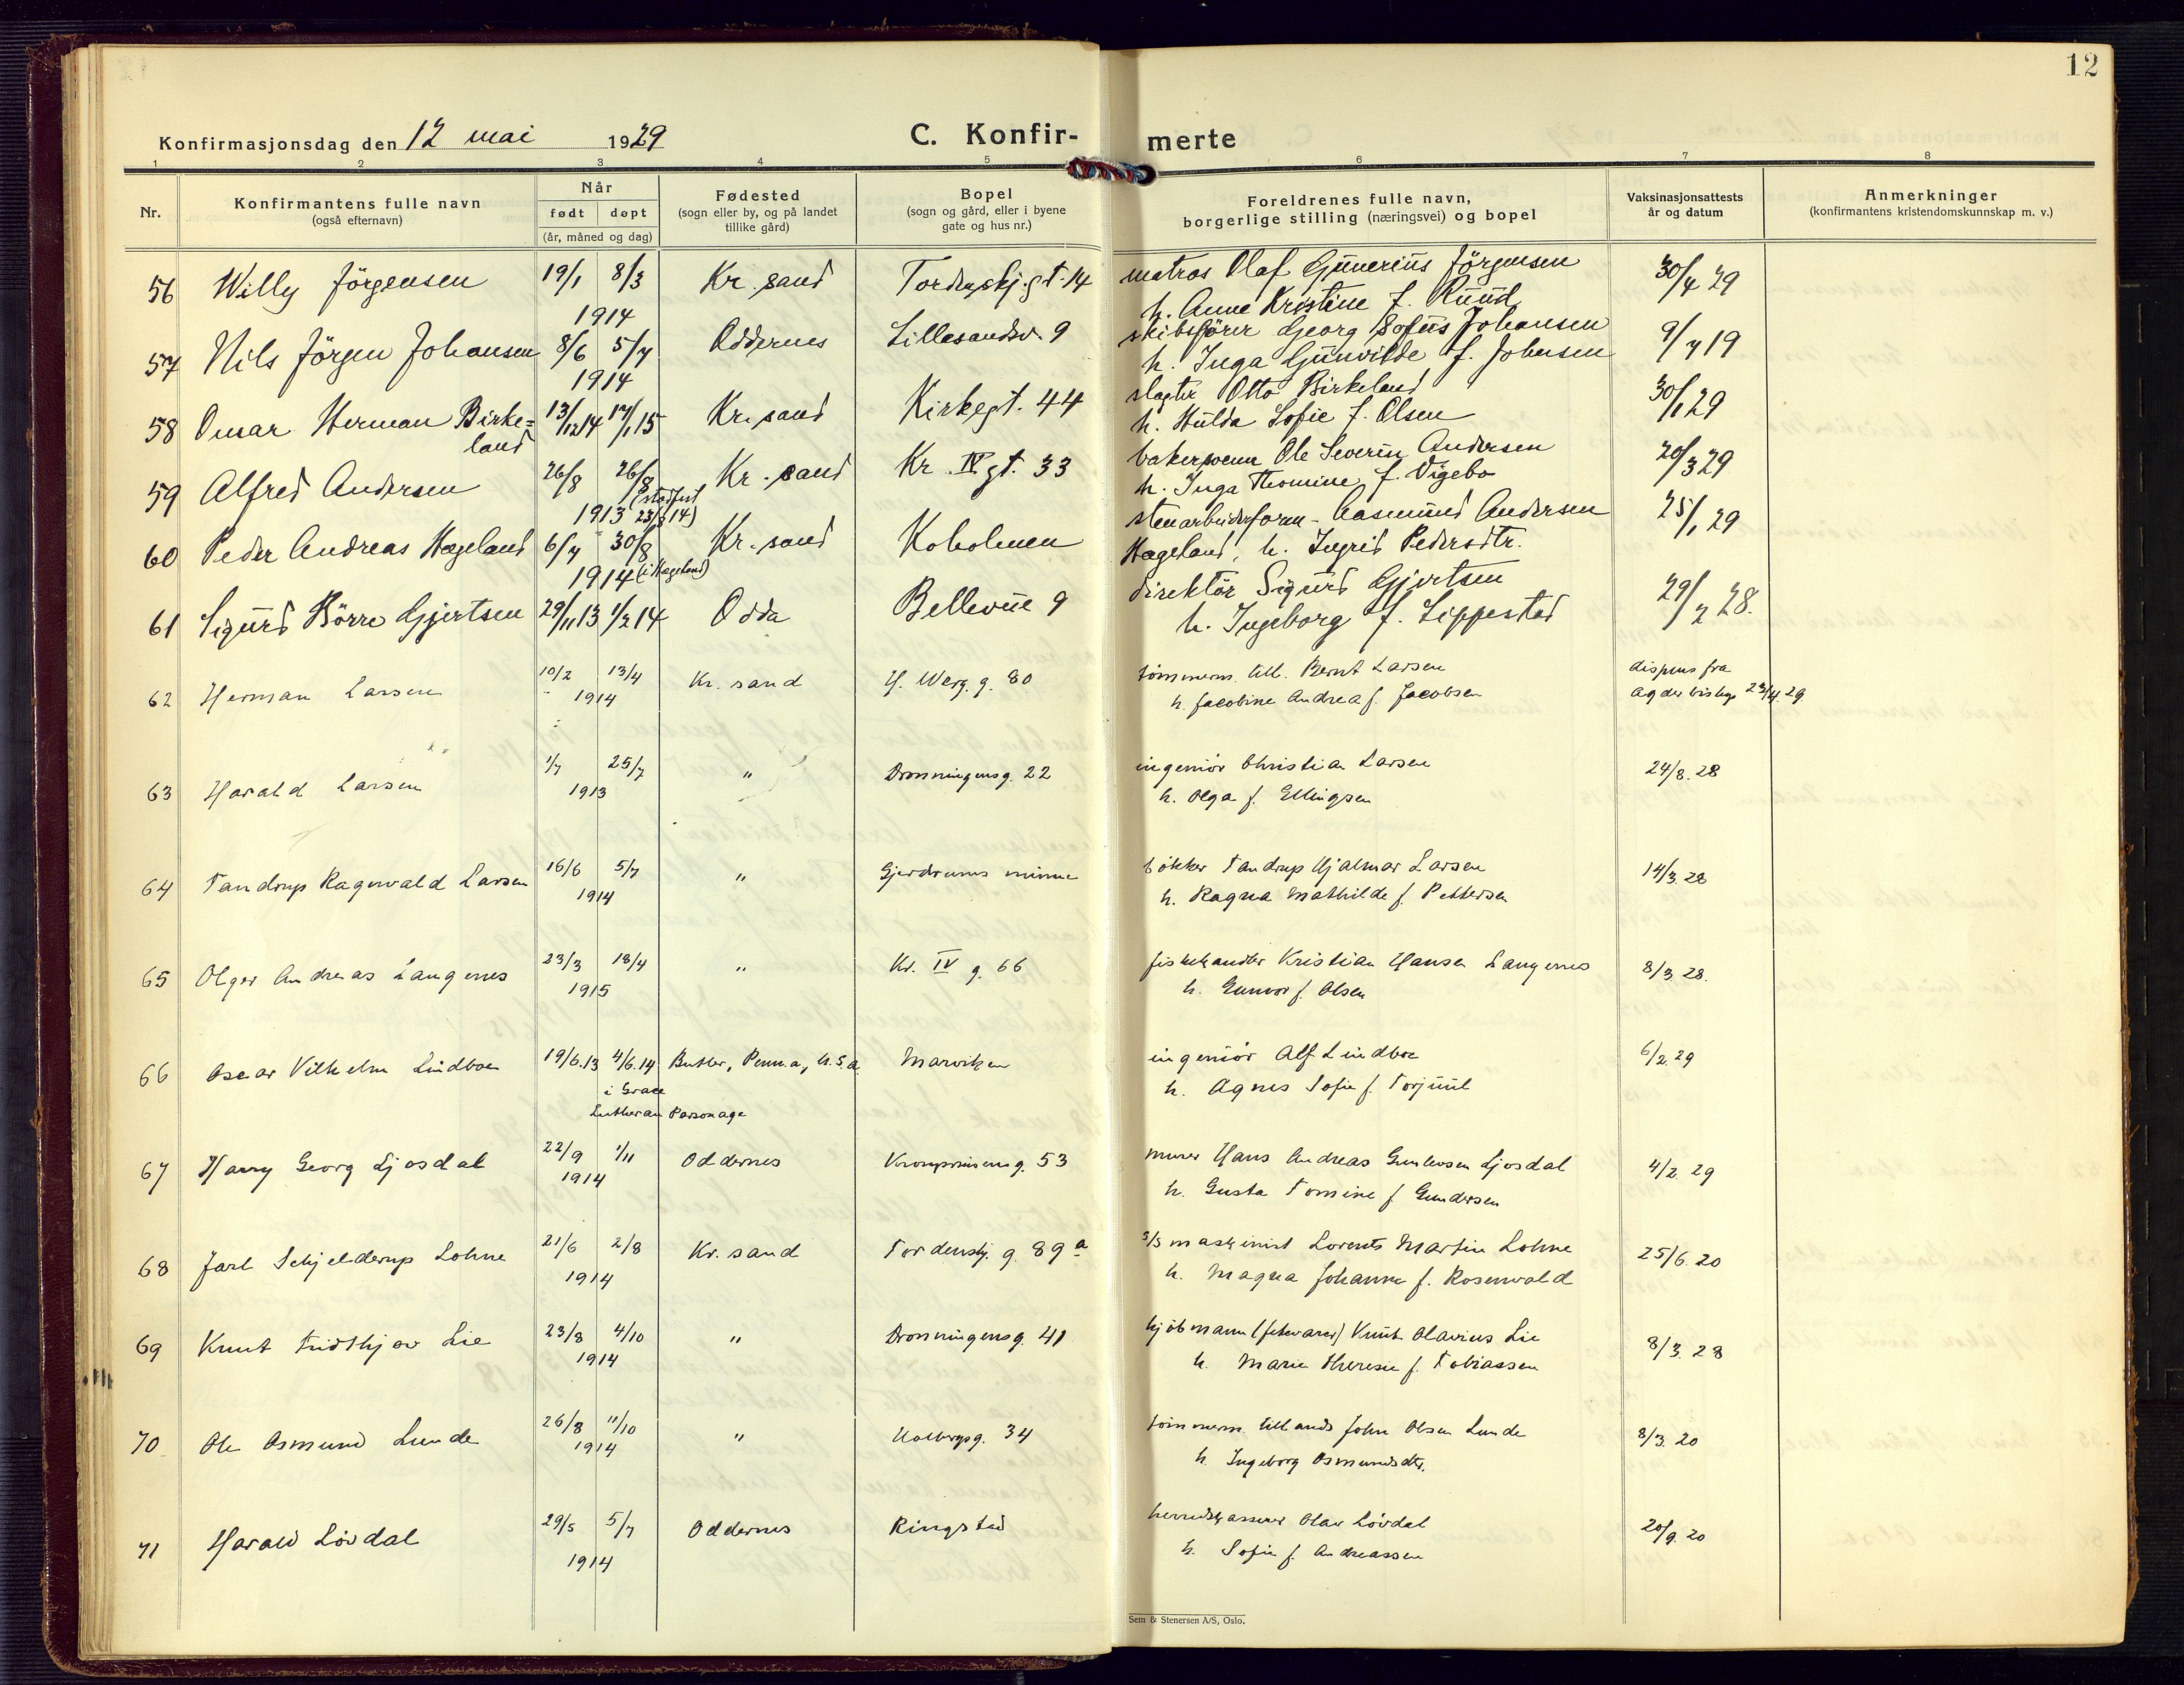 12
Konfirmasjonsdag den 12 mai 1929
C. Konfir-merte
1 2 3 4 5 6 7 8
Nr.
Konfirmantens fulle navn
(også efternavn)
Når
født døpt
(år, måned og dag)
Fødested
(sogn eller by, og på landet
tillike gård)
Bopel
(sogn og gård, eller i byene
gate og hus nr.)
Foreldrenes fulle navn,
borgerlige stilling (næringsvei) og bopel
Vaksinasjonsattests
år og datum
Anmerkninger
(konfirmantens kristendomskunnskap m. v.)
56 Willy Jörgensen 19/1 8/3 Kr. sand Tordenskj.gt. 14 matros Olaf Gunerius Jörgensen 30/4 29
1914 h. Anne Kristine f. Ruud
57 Nils Jörgen Johansen 8/6 5/7 Oddernes Lillesandsv. 9 skibsförer Georg Sofus Johansen 9/7 19
1914 h. Inga Gunvilde f. Johnsen
58 Omar Herman Birke= 13/12 14 17/1 15 Kr. sand Kirkegt. 44 slagter Otto Birkeland 30/1 29
land h. Hulda Sofie f. Olsen
59 Alfred Andersen 26/8 26/8 Kr. sand Kr. IV gt. 33 bakersvenn Ole Severin Andersen 20/3 29
1913 (stadfest 23/8 14) h. Inga Thomine f. Vigebo
60 Peder Andreas Hageland 6/7 30/8 Kr. sand Koholmen stenarbeiderform. Aasmund Andersen 25/1 29
1914 (i Hægeland) Hægeland, h. Ingrid Pedersdtr.
61 Sigurd Börre Gjertsen 29/11 13 1/2 14 Odda Bellevue 9 direktör Sigurd Gjertsen 29/2 28.
h. Ingeborg f. Lippestad
62 Herman Larsen 10/2 13/4 Kr. sand H. Werg. g. 80 tömmerm. till. Bernt Larsen dispens fra
1914 h. Jacobine Andrea f. Jacobsen Agder biskop 23/4. 29
63 Harald Larsen 1/7 25/7 " Dronningensg. 22 ingeniör Christian Larsen 24/8. 28
1913 h. Olga f. Ellingsen
64 Tandrup Ragnvald Larsen 16/6 5/7 " Gjerdrums minne bökker Tandrup Hjalmar Larsen 14/3. 28
1914 h. Ragna Mathilde f. Pettersen
65 Olger Andreas Langenes 23/3 18/4 " Kr. IV g. 66 fiskehandler Kristian Hansen Langenes 8/3. 28.
1915 h. Gunvor f. Olsen
66 Oscar Vilhelm Lindboe 19/6.13 4/6.14 Butler, Penn.a, U.S.a. Marviken ingeniör Alf Lindboe 6/2. 29
i Grace h. Agnes Sofie f. Torjuul
Lutheran Parsonage
67 Harry Georg Ljosdal 22/9 1/11 Oddernes Kronprinsensg. 53 murer Hans Andreas Gundersen Ljosdal 4/2. 29
1914 h. Gusta Tomine f. Gundersen
68 Jarl Schjelderup Lohne 21/6 2/8 Kr. sand Tordenskj. g. 89 a s/s maskinist Lorents Martin Lohne 25/6. 20
1914 h. Magna Johanne f. Rosenvald
69 Knut Fridthjov Lie 23/8 4/10 " Dronningensg. 41 kjöbmann (fetevarer) Knut Olavius Lie 8/3. 28
1914 h. Marie Theresie f. Tobiassen
70 Ole Osmund Lunde 26/8 11/10 " Holbergsg. 34 tömmerm. tillands John Olsen Lunde 8/3. 20
1914 h. Ingeborg Osmundsdtr.
71 Harald Lövdal 29/5 5/7 Oddernes Ringstad herredskasserer Olav Lövdal 20/9. 20
1914 h. Sofie f. Andreassen
Sem & Stenersen A/S, Oslo.